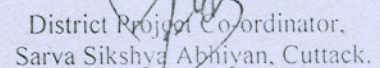 District Project Co-ordinator,
Sarva Sikshya Abhiyan, Cuttack.